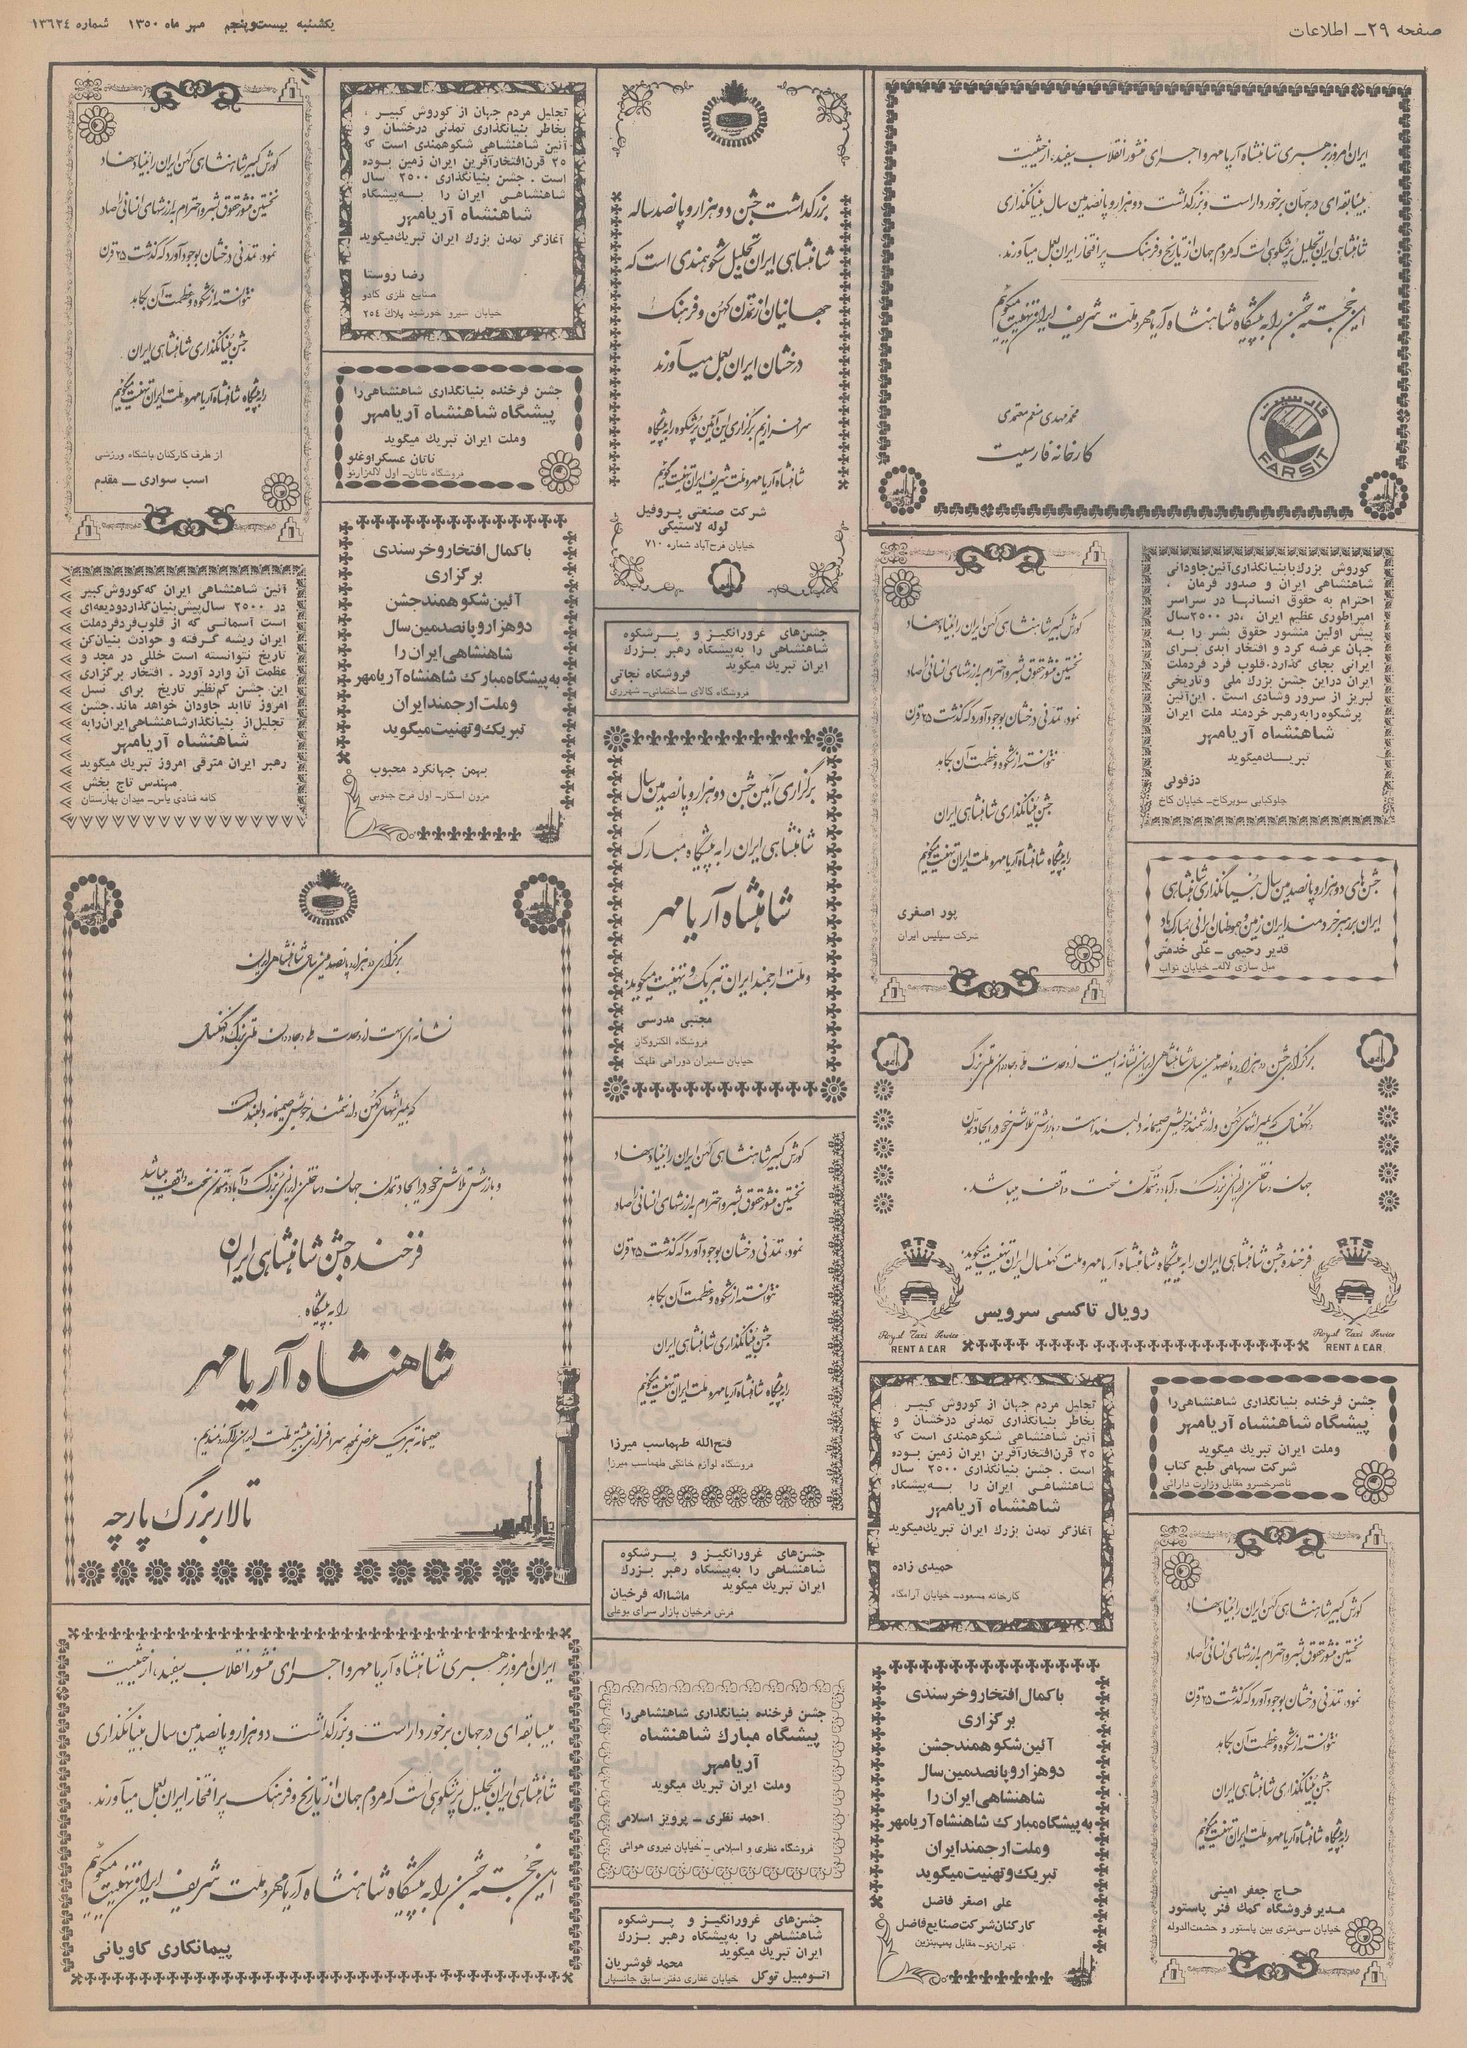 صفحه ۲۹ــ اطلاعات
یکشنبه بیست‌و‌پنجم مهر ماه ۱۳۵۰ شماره ۱۳۶۲۴
ایران امروز برهبری شاهنشاه آریامهر و اجرای منشور انقلاب سپید، از حیثیت
بیسابقه‌ای در جهان برخوردار است و بزرگداشت دو هزار و پانصدمین سال بنیانگذاری
شاهنشاهی ایران تجلیل پر شکوهی است که مردم جهان از تاریخ و فرهنگ پر افتخار ایران بعمل میآورند.
این خجسته جشن را به پیشگاه شاهنشاه آریامهر و ملت شریف ایران تهنیت میگوئیم
محمد مهدی منعم معتمدی
کارخانه فارسیت
فارسیت
FARSIT
بزرگداشت جشن دو هزار و پانصد ساله
شاهنشاهی ایران تجلیل شکوهمندی است که
جهانیان از تمدن کهن و فرهنگ
درخشان ایران بعمل میآورند
سرافرازیم برگزاری این آئین پر شکوه را به پیشگاه
شاهنشاه آریامهر و ملت شریف ایران تهنیت گوئیم
شرکت صنعتی پروفیل
لوله لاستیکی
خیابان فرح‌آباد شماره ۷۱۰
تجلیل مردم جهان از کوروش کبیر ،
بخاطر بنیانگذاری تمدنی درخشان و
آئین شاهنشاهی شکوهمندی است که
۲۵ قرن‌افتخارآفرین ایران زمین بوده
است . جشن بنیانگذاری ۲۵۰۰ سال
شاهنشاهی ایران را به‌پیشگاه
شاهنشاه آریامهر
آغازگر تمدن بزرگ ایران تبریک‌میگوید
رضا روستا
صنایع فلزی کادو
خیابان شیرو خورشید پلاک ۲۵٤
جشن فرخنده بنیانگذاری شاهنشاهی‌را
پیشگاه شاهنشاه آریامهر
وملت ایران تبریک میگوید
تاتان عسکراوغلو
فروشگاه تاتان‌ــ اول لاله‌زارنو
کورش کبیر شاهنشاهی کهن ایران را بنیاد نهاد
نخستین منشور حقوق بشر و احترام به ارزشهای انسانی را صادر
نمود، تمدنی درخشان بوجود آورد که گذشت ۲۵ قرن
نتوانسته از شکوه و عظمت آن بکاهد
جشن بنیانگذاری شاهنشاهی ایران
را به پیشگاه شاهنشاه آریامهر و ملت ایران تهنیت میگوئیم
از طرف کارکنان باشگاه ورزشی
اسب سواری ــ مقدم
باکمال افتخار و خرسندی
برگزاری
آئین شکوهمند جشن
دوهزار و پانصدمین سال
شاهنشاهی ایران را
به پیشگاه مبارک شاهنشاه آریامهر
و ملت ارجمند ایران
تبریک و تهنیت میگوید
بهمن جهانگرد محبوب
مزون اسکار‌ــ اول فرح جنوبی
آئین شاهنشاهی ایران که‌کوروش‌کبیر
در ۲۵۰۰ سال‌پیش‌بنیان‌گذاردودیعه‌ای
است آسمانی که از قلوب‌فردفردملت
ایران ریشه گرفته و حوادث بنیان‌کن
تاریخ نتوانسته است خللی در مجد و
عظمت آن وارد آورد . افتخار برگزاری
این جشن کم‌نظیر تاریخ برای نسل
امروز تاابد جاودان خواهد ماند.جشن
تجلیل‌از بنیانگذارشاهنشاهی‌ایران‌رابه
شاهنشاه آریامهر
رهبر ایران مترقی امروز تبریك میگوید
مهندس تاج بخش
کافه قنادی یاس‌ــ میدان بهارستان
جشن‌های غرورانگیز و پرشکوه
شاهنشاهی را به‌پیشگاه رهبر بزرگ
ایران تبریک میگوید
فروشگاه نجاتی
فروشگاه کالای ساختمانی‌ــ شهرری
کورش کبیر شاهنشاهی کهن ایران را بنیاد نهاد
نخستین منشور حقوق بشر و احترام به ارزشهای انسانی را صادر
نمود، تمدنی درخشان بوجود آورد که گذشت ۲۵ قرن
نتوانسته از شکوه و عظمت آن بکاهد
جشن بنیانگذاری شاهنشاهی ایران
را به پیشگاه شاهنشاه آریامهر و ملت ایران تهنیت میگوئیم
پور اصغری
شرکت سیلیس ایران
کوروش بزرگ‌بابنیانگذاری‌آئین‌جاودانی
شاهنشاهی ایران و صدور فرمان ،
احترام به حقوق انسانها در سراسر
امپراطوری عظیم ایران ،در ۲۵۰۰سال
پیش اولین منشور حقوق بشر را به
جهان عرضه کرد و افتخار ابدی برای
ایرانی بجای گذارد.قلوب فرد فردملت
ایران دراین جشن بزرگ ملی وتاریخی
لبریز از سرور وشادی است . این‌آئین
پرشکوه رابه‌رهبر خردمند ملت ایران
شاهنشاه آریامهر
تبریک‌میگوید
دزفولی
چلوکبابی سوپرکاخ‌ــ خیابان کاخ
جشن‌های دو هزار و پانصدمین سال بنیانگذاری شاهنشاهی
ایران بر رهبر خردمند ایران زمین و هموطنان ایرانی مبارک باد
قدیر رحیمی ــ علی خدمتی
مبل سازی لاله‌ــ خیابان نواب
برگزاری آئین جشن دو هزار و پانصدمین سال
شاهنشاهی ایران را به پیشگاه مبارک
شاهنشاه آریامهر
و ملت ارجمند ایران تبریک و تهنیت میگوید.
مجتبی مدرسی
فروشگاه الکتروگاز
خیابان شمیران دوراهی قلهک
برگزاری دو هزار و پانصدمین سال شاهنشاهی ایران
نشانه‌ای است از وحدت ملی و جاودان ملتی بزرگ و کهنسال
که بمیراثهای کهن و ارزشمند خویش صمیمانه دلبسته است
و بارزش تلاش خود در ایجاد تمدن جهان و ساختن ایرانی بزرگ و آباد و متمدن سخت واقف میباشد
فرخنده جشن شاهنشاهی ایران
را به پیشگاه
شاهنشاه آریامهر
صمیمانه تبریک عرض نموده سرافرازی بیشتر ملت ایران را آرزومندیم.
تالار بزرگ پارچه
برگزاری جشن دو هزار و پانصدمین سال شاهنشاهی ایران نشانه ایست از وحدت ملی و جاودان ملتی بزرگ
و کهنسال که بمیراثهای کهن و ارزشمند خویش صمیمانه دلبسته است و بارزش تلاش خود در ایجاد تمدن
جهان و ساختن ایرانی بزرگ و آباد و متمدن سخت واقف میباشد.
فرخنده جشن شاهنشاهی ایران را به پیشگاه شاهنشاه آریامهر و ملت کهنسال ایران تهنیت میگوید.
رویال تاکسی سرویس
RTS
Royal Taxi Service
RENT A CAR
RTS
Royal Taxi Service
RENT A CAR
کورش کبیر شاهنشاهی کهن ایران را بنیاد نهاد
نخستین منشور حقوق بشر و احترام به ارزشهای انسانی را صادر
نمود، تمدنی درخشان بوجود آورد که گذشت ۲۵ قرن
نتوانسته از شکوه و عظمت آن بکاهد
جشن بنیانگذاری شاهنشاهی ایران
را به پیشگاه شاهنشاه آریامهر و ملت ایران تهنیت میگوئیم
فتح‌الله طهماسب میرزا
فروشگاه لوازم خانگی طهماسب میرزا
جشن فرخنده بنیانگذاری شاهنشاهی‌را
پیشگاه شاهنشاه آریامهر
وملت ایران تبریک میگوید
شرکت سهامی طبع کتاب
ناصرخسرو مقابل وزارت دارائی
تجلیل مردم جهان از کوروش کبیر ،
بخاطر بنیانگذاری تمدنی درخشان و
آئین شاهنشاهی شکوهمندی است که
۲۵ قرن‌افتخارآفرین ایران زمین بوده
است . جشن بنیانگذاری ۲۵۰۰ سال
شاهنشاهی ایران را به‌پیشگاه
شاهنشاه آریامهر
آغازگر تمدن بزرگ ایران تبریک‌میگوید
حمیدی زاده
کارخانه مسعود‌ــ خیابان آرامگاه
جشن‌های غرورانگیز و پرشکوه
شاهنشاهی را به‌پیشگاه رهبر بزرگ
ایران تبریک میگوید
ماشااله فرخیان
فرش فرخیان بازار سرای بوعلی
کورش کبیر شاهنشاهی کهن ایران را بنیاد نهاد
نخستین منشور حقوق بشر و احترام به ارزشهای انسانی را صادر
نمود، تمدنی درخشان بوجود آورد که گذشت ۲۵ قرن
نتوانسته از شکوه و عظمت آن بکاهد
جشن بنیانگذاری شاهنشاهی ایران
را به پیشگاه شاهنشاه آریامهر و ملت ایران تهنیت میگوئیم
حاج جعفر امینی
مدیر فروشگاه کمک فنر پاستور
خیابان سی‌متری بین پاستور و حشمت‌الدوله
باکمال افتخار و خرسندی
برگزاری
آئین شکوهمند جشن
دوهزار و پانصدمین سال
شاهنشاهی ایران را
به پیشگاه مبارک شاهنشاه آریامهر
و ملت ارجمند ایران
تبریک و تهنیت میگوید
علی اصغر فاضل
کارکنان شرکت صنایع فاضل
تهران‌نو‌ــ مقابل پمپ‌بنزین
جشن فرخنده بنیانگذاری شاهنشاهی‌را
پیشگاه مبارک شاهنشاه
آریامهر
وملت ایران تبریک میگوید
احمد نظری ــ پرویز اسلامی
فروشگاه نظری و اسلامی ــ خیابان نیروی هوائی
جشن‌های غرورانگیز و پرشکوه
شاهنشاهی را به‌پیشگاه رهبر بزرگ
ایران تبریک میگوید
محمد قوشریان
اتومبیل توکل خیابان غفاری دفتر سابق جانسپار
ایران امروز برهبری شاهنشاه آریامهر و اجرای منشور انقلاب سپید، از حیثیت
بیسابقه‌ای در جهان برخوردار است و بزرگداشت دو هزار و پانصدمین سال بنیانگذاری
شاهنشاهی ایران تجلیل پر شکوهی است که مردم جهان از تاریخ و فرهنگ پر افتخار ایران بعمل میآورند.
این خجسته جشن را به پیشگاه شاهنشاه آریامهر و ملت شریف ایران تهنیت میگوئیم
پیمانکاری کاویانی